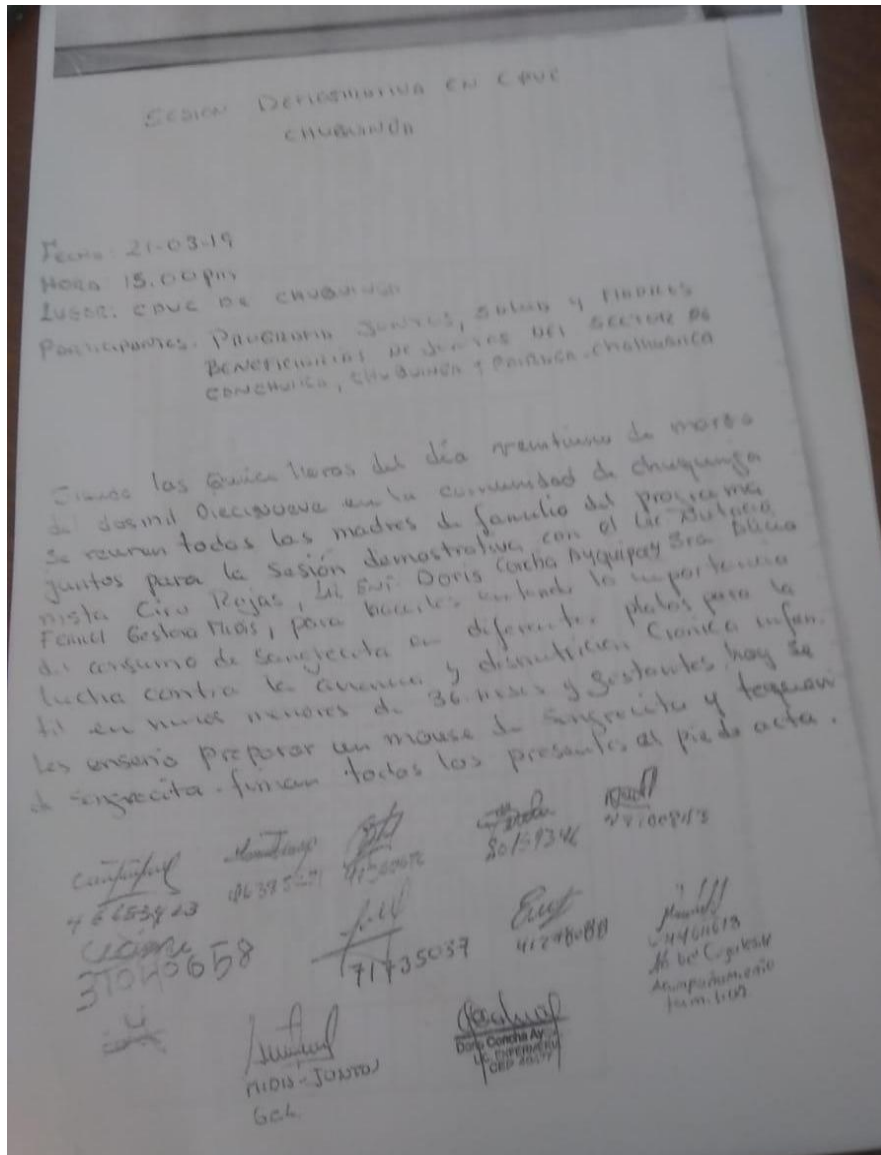 SESION DEMOSTRATIVA EN CPVC
CHUQUINGA
Fecha: 21-03-19
Hora: 15.00 pm
Lugar: CPVC DE CHUQUINGA
Participantes. PROGRAMA JUNTOS, SALUD Y MADRES
BENEFICIARIAS DE JUNTOS DEL SECTOR DE
CONCHUISA, CHUQUINGA Y PAIRACA-CHALHUANCA
Siendo las Quince Horas del día veintiuno de marzo
del dosmil Diecinueve en la comunidad de chuquinga
Se reunen todas las madres de familia del programa
juntos para la Sesión demostrativa con el Lic
nista Ciro Rojas, Lic Enf. Doris Concha Ayquipa y Sra Alicia
Gestora Midis, para la importancia
del consumo de sangrecita en diferentes platos para la
lucha contra la anemia y desnutrición Cronica infan
til en niños menores de 36 meses y gestantes hoy se
les enseño preparar un mouse de sangrecita y tequeño
de sangrecita. firman todos los presentes al pie de acta.
80159346
31040658
71735037
Acompañamiento
familiar
MIDIS-JUNTOS
GCL
Doris Concha Ay
LIC. ENFERMERIA
CEP